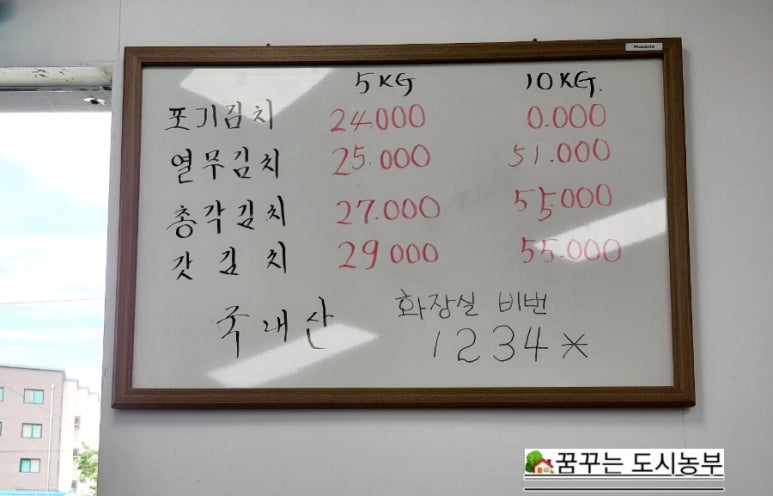 5KG 10KG.
포기김치 24.000 0.000
열무김치 25.000 51.000
총각김치 27.000 55.000
갓김치 29.000 55.000
국내산
화장실 비번
1234*
꿈꾸는 도시농부